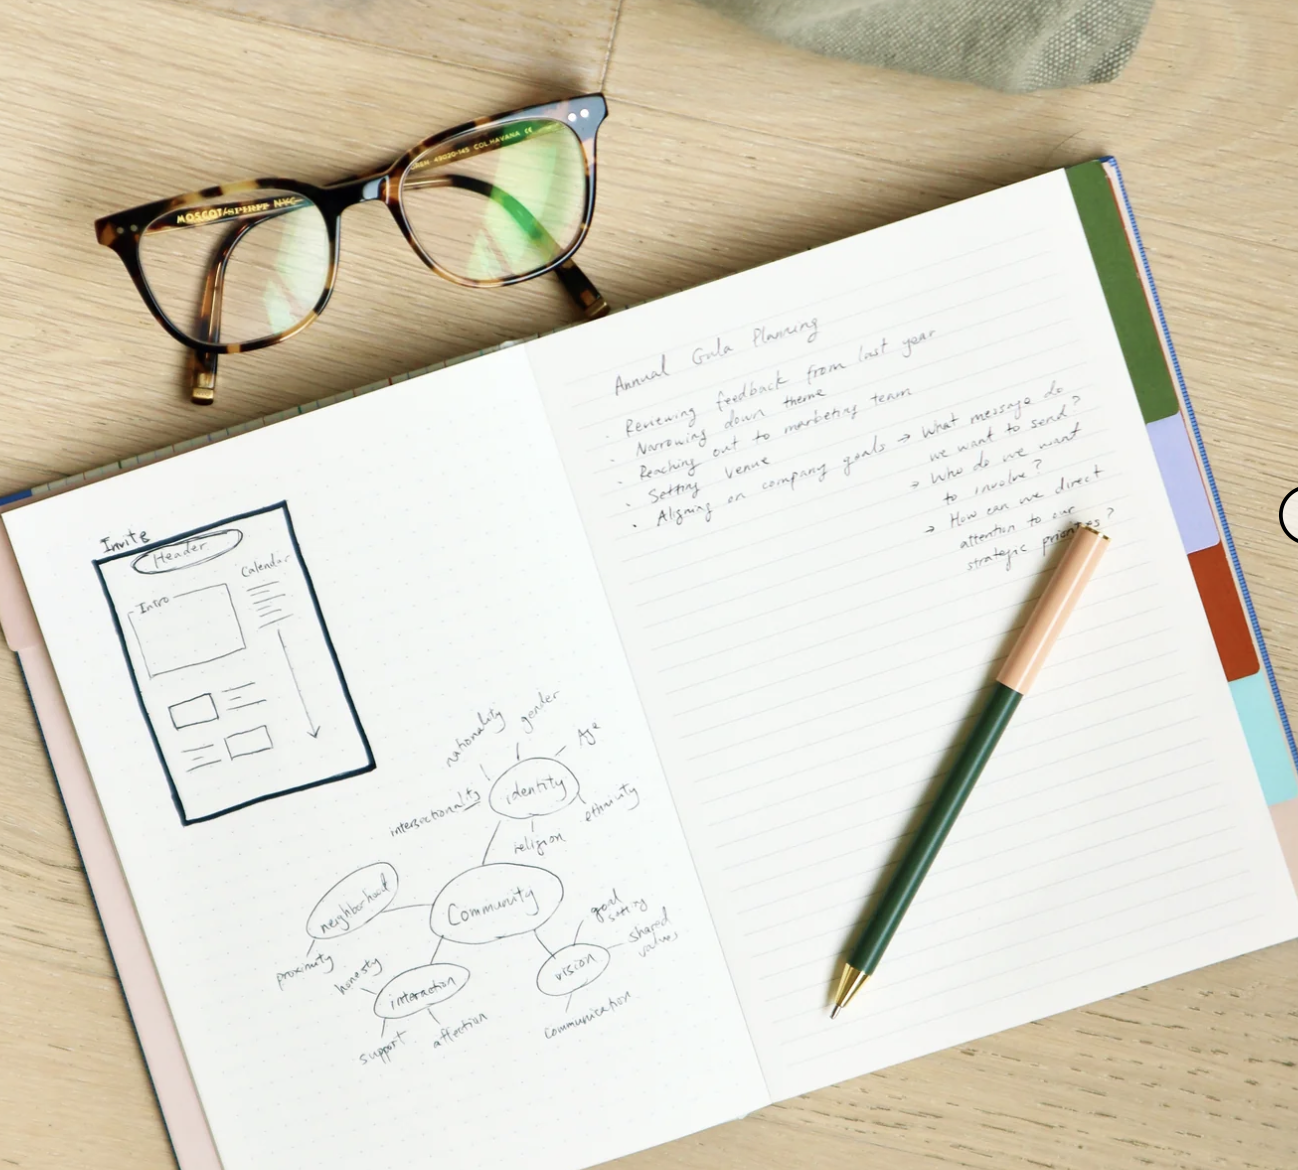 MOSCOT/SPIRIT NYC
49020-145 COL.HAVANA CE
Invite
Header
Calendar
Intro
nationality
gender
Age
identity
intersectionality
ethnicity
religion
Community
neighborhood
proximity
honesty
interaction
support
affection
vision
goal
setting
shared
values
communication
Annual Gala Planning
· Reviewing feedback from last year
· Narrowing down theme
· Reaching out to marketing team
· Setting venue
· Aligning on company goals → What message do
we want to send?
→ Who do we want
to involve?
→ How can we direct
attention to our
strategic priorities?